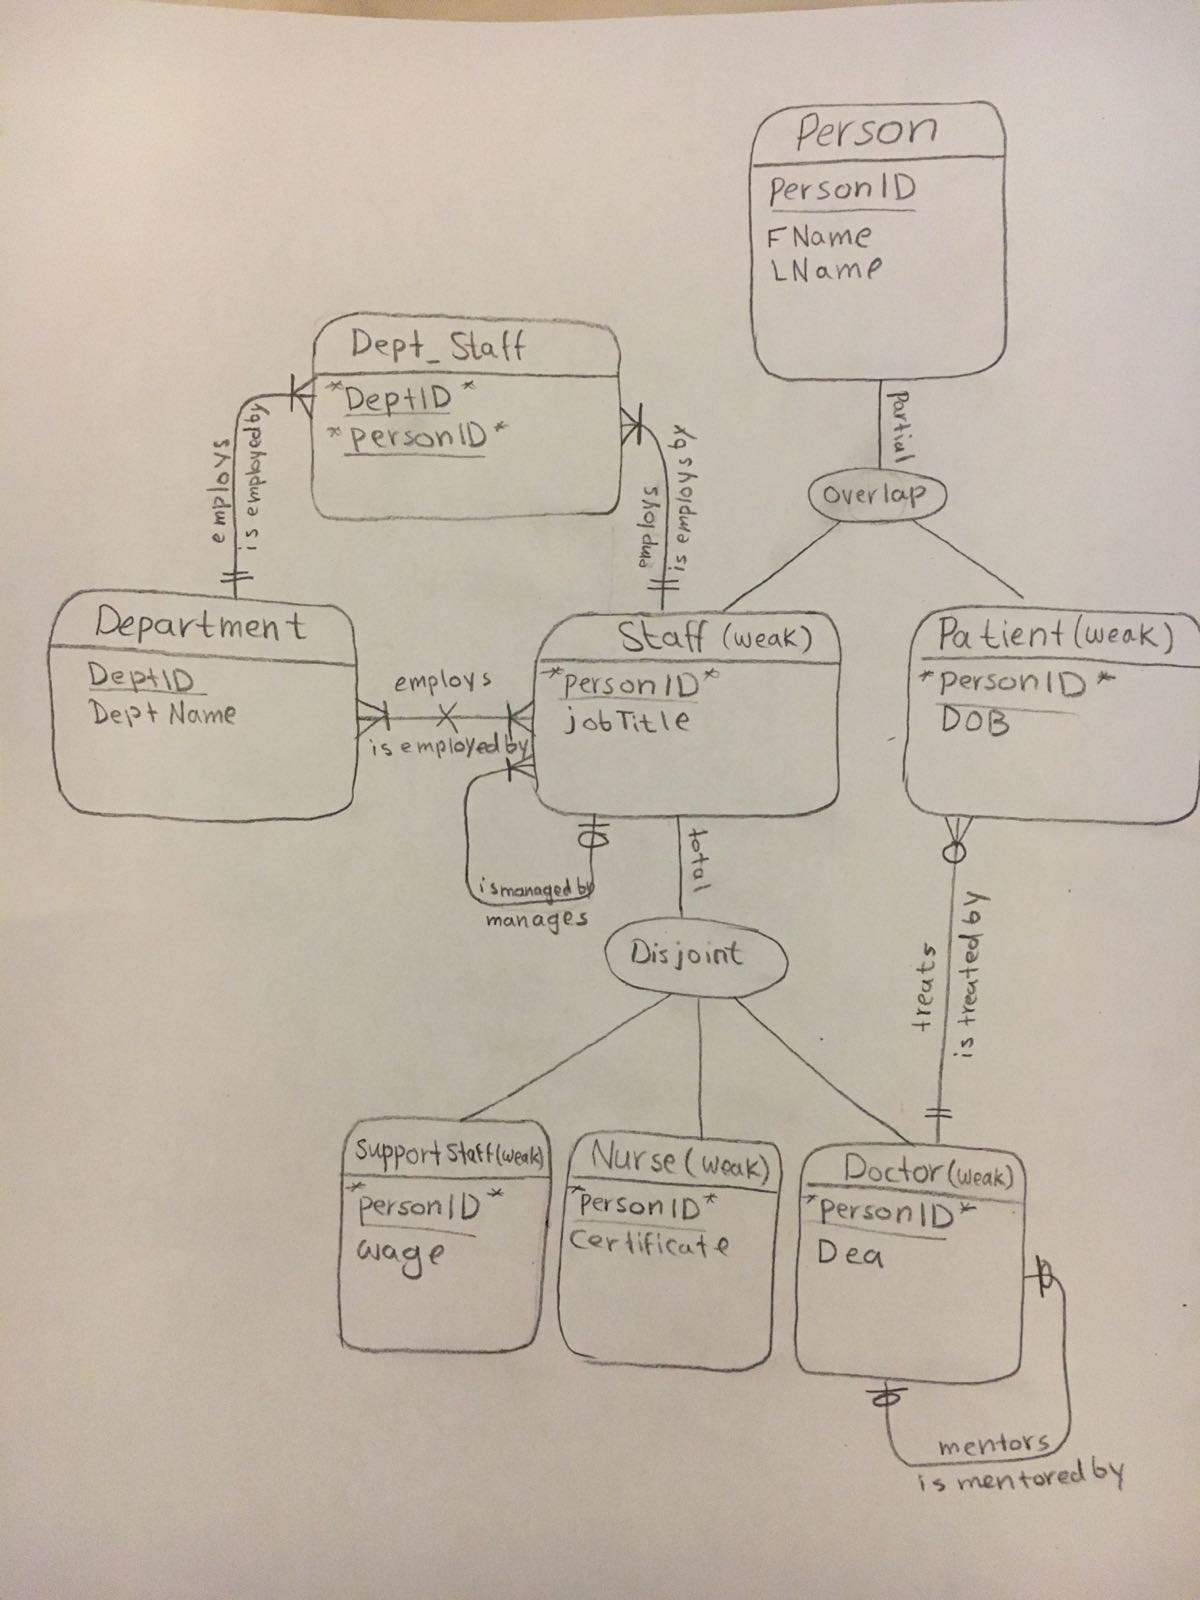 Person
PersonID
FName
LName
Partial
Overlap
Dept_Staff
*DeptID*
*personID*
employs
is employedby
employs
is employs by
Department
DeptID
Dept Name
employs
is employed by
Staff (weak)
*personID*
jobTitle
Patient (weak)
*personID*
DOB
is managed by
manages
total
Disjoint
treats
is treated by
Support Staff (weak)
*personID*
wage
Nurse (weak)
*personID*
Certificate
Doctor (weak)
*personID*
Dea
mentors
is mentored by